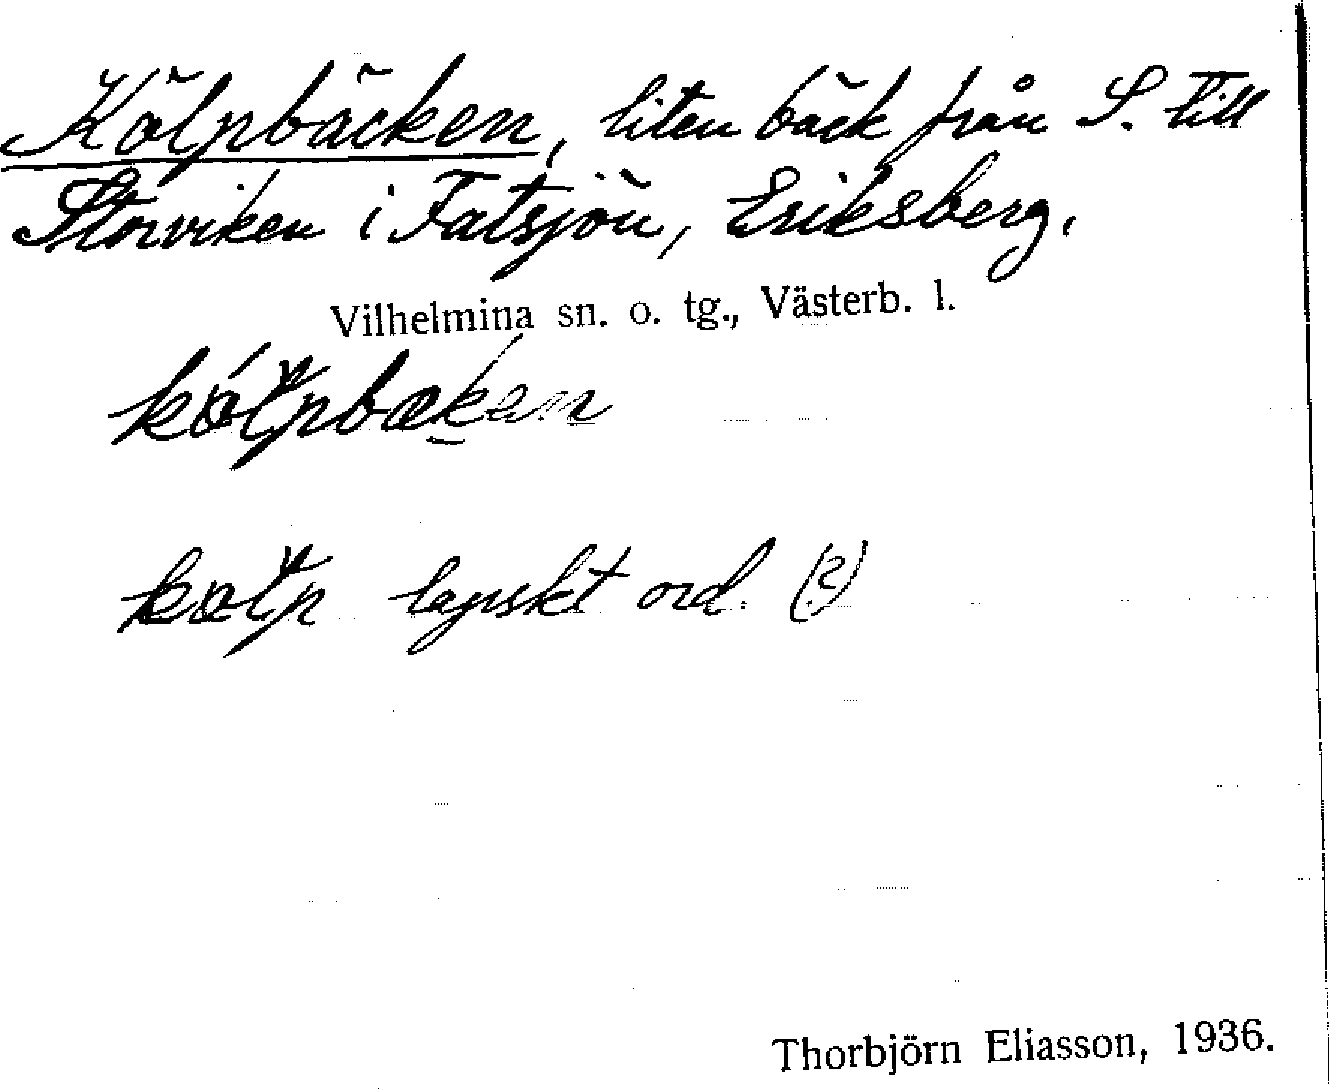 Kälpbäcken, liten bäck från S. till
Storviken i Fatsjön, Eriksberg.
Vilhelmina sn. o. tg., Västerb. l.
kälpbækən
kälp lapskt ord. (?)
Thorbjörn Eliasson, 1936.